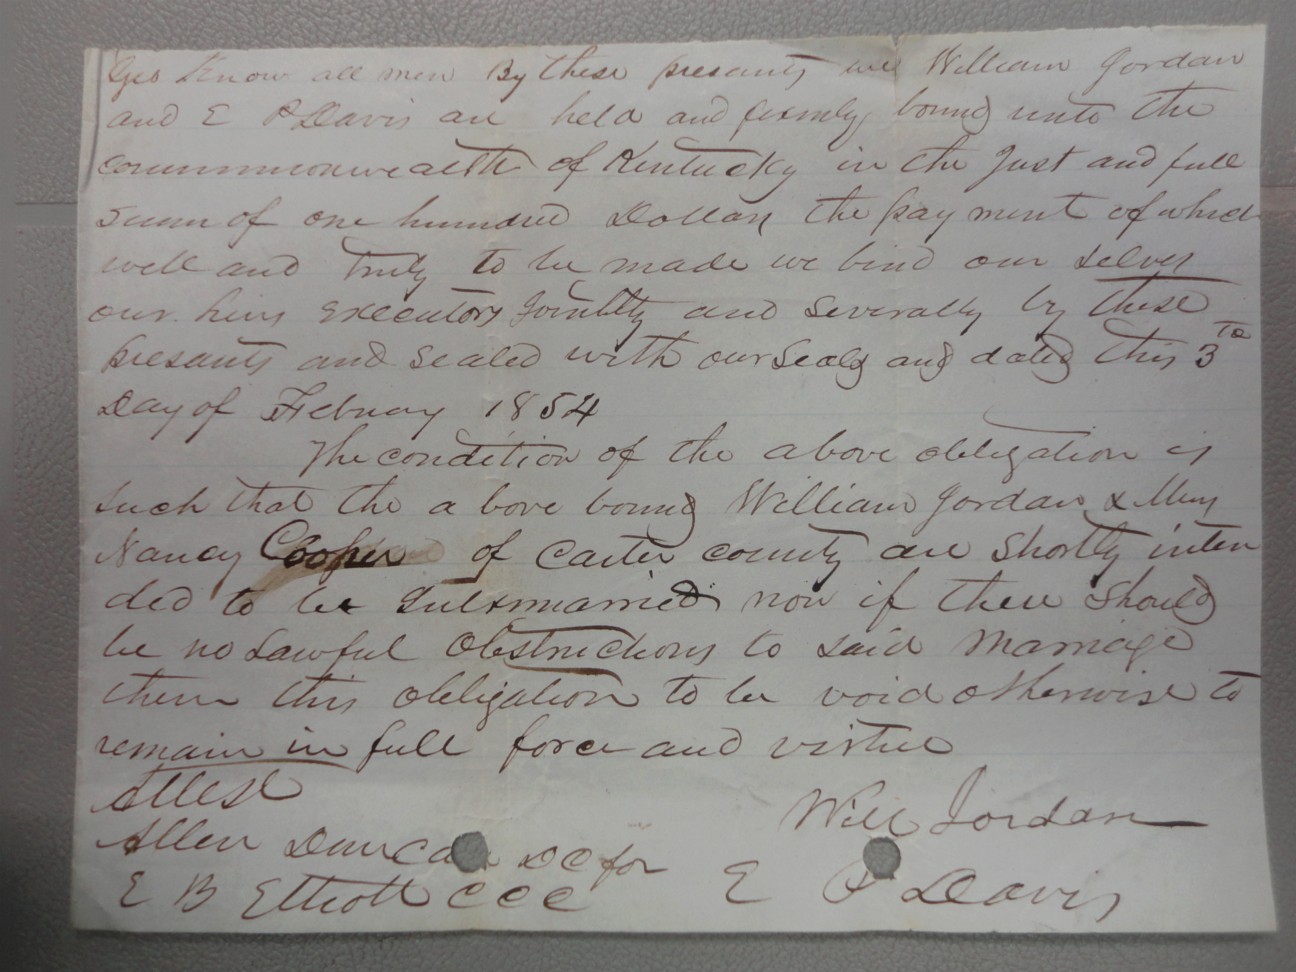 Know all men By these presants we William Jordan
and E P Davis are held and firmly bound unto the
commonwealth of Kentucky in the Just and full
sum of one hundred Dollars the pay ment of which
well and truly to be made we bind our selves
our heirs executors Jointly and Severally by these
presants and sealed with our seals and dated this 3
Day of February 1854
The condition of the above obligation is
such that the a bove bound William Jordan &
Nancy Cooper of Carter county are Shortly inten
ded to be intermarried now if there Should
be no Lawful Obstructions to said Marriage
then this obligation to be void otherwise to
remain in full force and virtue
Attest
Will Jordan
Allen Duncan DC for
E P Davis
E B Elliott CCC